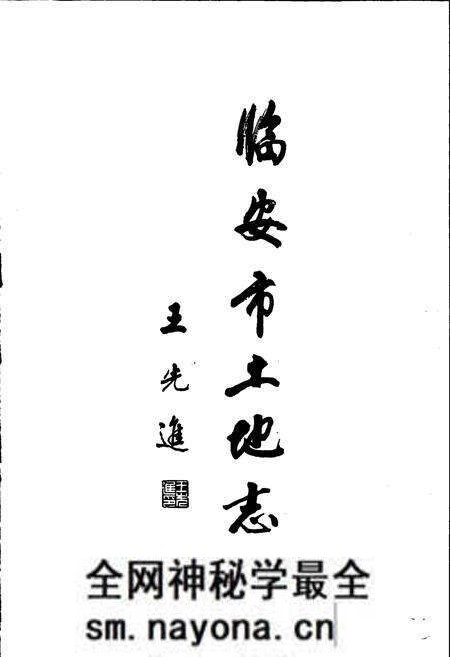 临安市土地志
王先進
全网神秘学最全
sm.nayona.cn